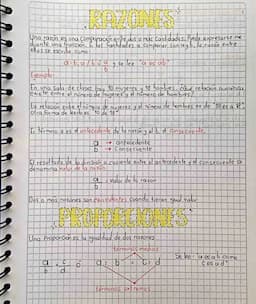 RAZONES
Una razón es una comparación entre dos o más cantidades. Puede expresarse me
diante una fracción. Si las cantidades a comparar son a y b, la razón entre
ellas se escribe como
a:b, a/b ó a/b y se lee "a es a b"
Ejemplo:
En una sala de clases hay 10 mujeres y 18 hombres. ¿Qué relación numérica
existe entre el número de mujeres y el número de hombres?
La relación entre el número de mujeres y el número de hombres es de "10 es a 18",
otra forma de leerlo es "10 de 18"
El término a es el antecedente de la razón y el b, el consecuente.
a → antecedente
b → consecuente
El resultado de la división o cociente entre el antecedente y el consecuente se
denomina valor de la razón
a/b : valor de la razón
Dos o más razones son equivalentes cuando tienen igual valor
PROPORCIONES
Una proporción es la igualdad de dos razones
términos medios
a/b = c/d ó a : b = c : d
Se lee "a es a b como
c es a d"
términos extremos